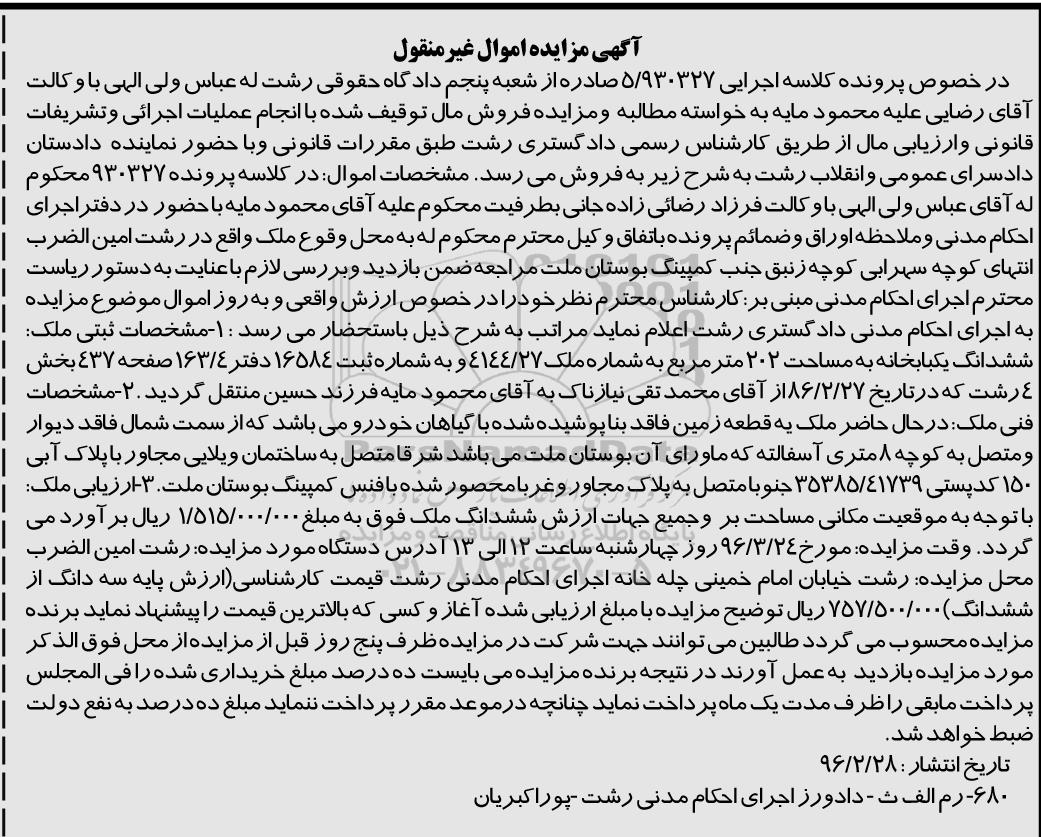 آگهی مزایده اموال غیر منقول
در خصوص پرونده کلاسه اجرایی ۵/۹۳۰۳۲۷ صادره از شعبه پنجم دادگاه حقوقی رشت له عباس ولی الهی با وکالت
آقای رضایی علیه محمود مایه به خواسته مطالبه ومزایده فروش مال توقیف شده با انجام عملیات اجرائی وتشریفات
قانونی وارزیابی مال از طریق کارشناس رسمی دادگستری رشت طبق مقررات قانونی وبا حضور نماینده دادستان
دادسرای عمومی وانقلاب رشت به شرح زیر به فروش می رسد. مشخصات اموال: در کلاسه پرونده ۹۳۰۳۲۷ محکوم
له آقای عباس ولی الهی با وکالت فرزاد رضائی زاده جانی بطرفیت محکوم علیه آقای محمود مایه با حضور در دفتر اجرای
احکام مدنی وملاحظه اوراق وضمائم پرونده باتفاق وکیل محترم محکوم له به محل وقوع ملک واقع در رشت امین الضرب
انتهای کوچه سهرابی کوچه زنبق جنب کمپینگ بوستان ملت مراجعه ضمن بازدید وبررسی لازم با عنایت به دستور ریاست
محترم اجرای احکام مدنی مبنی بر: کارشناس محترم نظر خود را در خصوص ارزش واقعی و به روز اموال موضوع مزایده
به اجرای احکام مدنی دادگستری رشت اعلام نماید مراتب به شرح ذیل باستحضار می رسد : ۱-مشخصات ثبتی ملک:
ششدانگ یکبابخانه به مساحت ۲۰۲ متر مربع به شماره ملک ۴۱۴۴/۲۷ و به شماره ثبت ۱۶۵۸۴ دفتر ۱۶۳/۴ صفحه ۴۳۷ بخش
۴ رشت که در تاریخ ۸۶/۲/۲۷ از آقای محمد تقی نیازناک به آقای محمود مایه فرزند حسین منتقل گردید .۲-مشخصات
فنی ملک: در حال حاضر ملک یه قطعه زمین فاقد بنا پوشیده شده با گیاهان خودرو می باشد که از سمت شمال فاقد دیوار
ومتصل به کوچه ۸ متری آسفالته که ماورای آن بوستان ملت می باشد شرقا متصل به ساختمان ویلایی مجاور با پلاک آبی
۱۵۰ کدپستی ۳۵۳۸۵/۴۱۷۳۹ جنوبا متصل به پلاک مجاور وغربا محصور شده با فنس کمپینگ بوستان ملت. ۳-ارزیابی ملک:
با توجه به موقعیت مکانی مساحت بر وجمیع جهات ارزش ششدانگ ملک فوق به مبلغ ۱/۵۱۵/۰۰۰/۰۰۰ ریال برآورد می
گردد. وقت مزایده: مورخ ۹۶/۳/۲۴ روز چهارشنبه ساعت ۱۲ الی ۱۳ آدرس دستگاه مورد مزایده: رشت امین الضرب
محل مزایده: رشت خیابان امام خمینی چله خانه اجرای احکام مدنی رشت قیمت کارشناسی(ارزش پایه سه دانگ از
ششدانگ) ۷۵۷/۵۰۰/۰۰۰ ریال توضیح مزایده با مبلغ ارزیابی شده آغاز و کسی که بالاترین قیمت را پیشنهاد نماید برنده
مزایده محسوب می گردد طالبین می توانند جهت شرکت در مزایده ظرف پنج روز قبل از مزایده از محل فوق الذکر
مورد مزایده بازدید به عمل آورند در نتیجه برنده مزایده می بایست ده درصد مبلغ خریداری شده را فی المجلس
پرداخت مابقی را ظرف مدت یک ماه پرداخت نماید چنانچه در موعد مقرر پرداخت ننماید مبلغ ده درصد به نفع دولت
ضبط خواهد شد.
تاریخ انتشار : ۹۶/۲/۲۸
۶۸۰- رم الف ث - دادورز اجرای احکام مدنی رشت -پوراکبریان
ParsNamadData
پایگاه اطلاع رسانی مناقصه و مزایده
۰۲۱-۸۸۳۴۹۶۷۰-۵